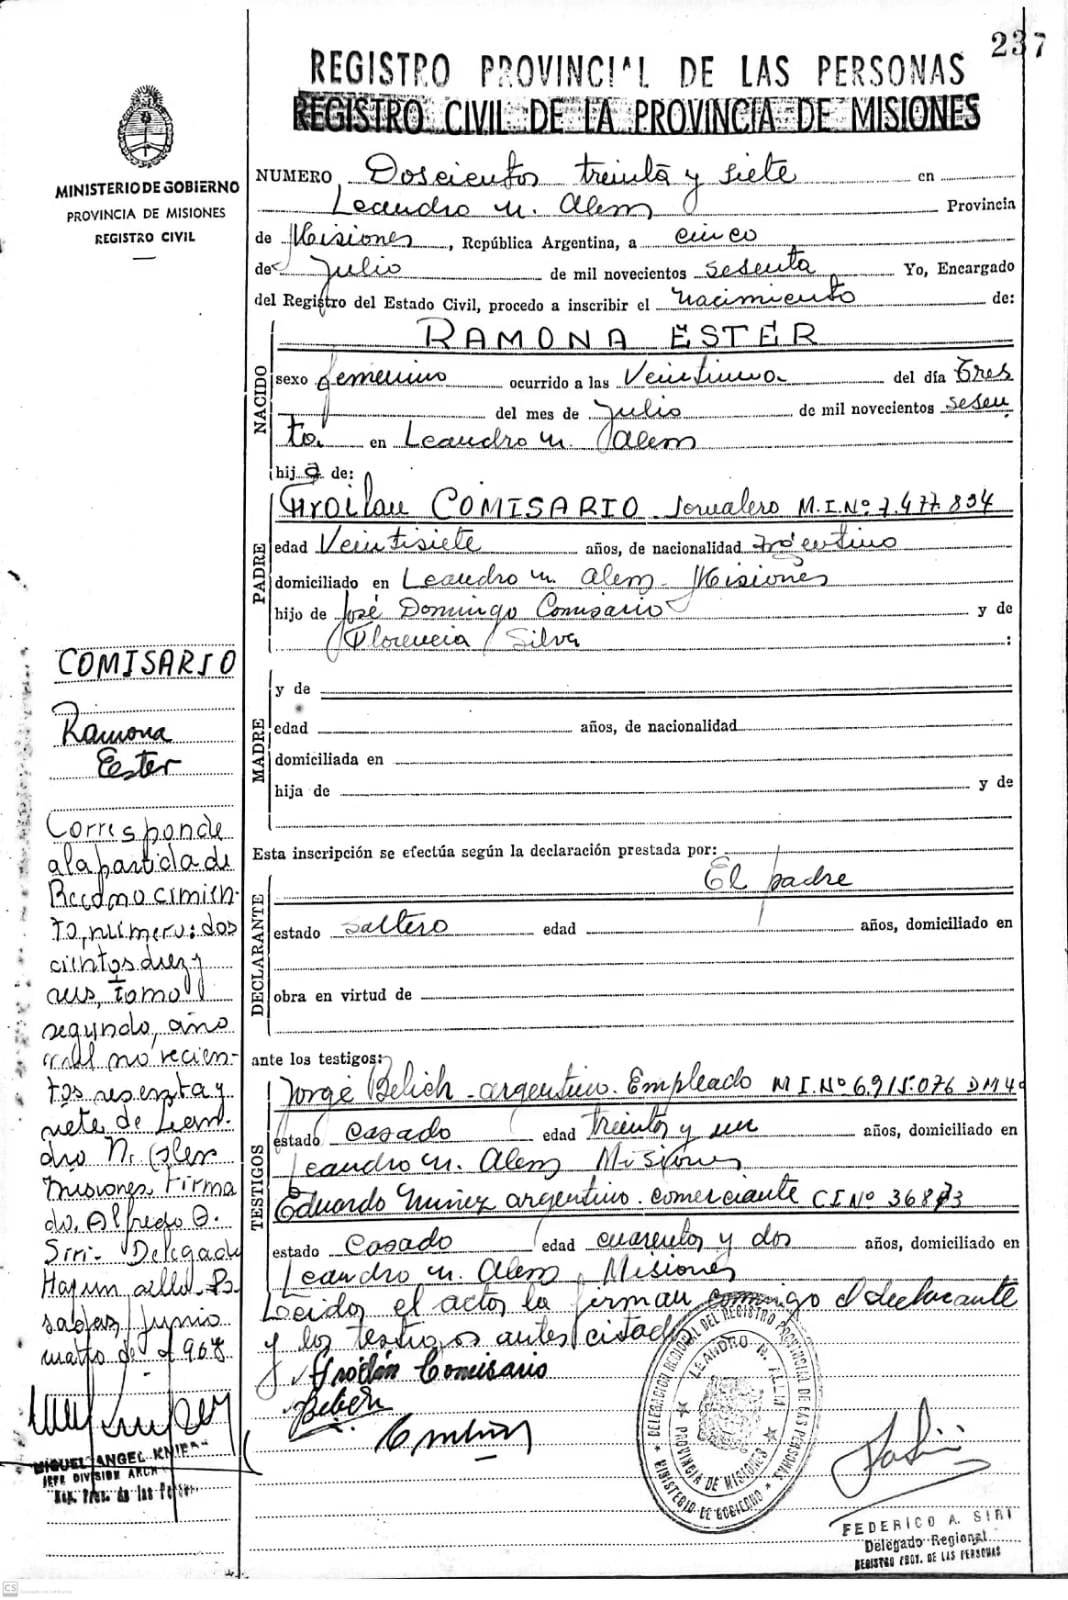 237
REGISTRO PROVINCIAL DE LAS PERSONAS
REGISTRO CIVIL DE LA PROVINCIA DE MISIONES
MINISTERIO DE GOBIERNO
PROVINCIA DE MISIONES
REGISTRO CIVIL
NUMERO Doscientos treinta y siete en
Leandro N. Alem Provincia
de Misiones, República Argentina, a cinco
de Julio de mil novecientos sesenta Yo, Encargado
del Registro del Estado Civil, procedo a inscribir el nacimiento de:
NACIDO
RAMONA ESTER
sexo femenino ocurrido a las Veintiuna del día Tres
del mes de Julio de mil novecientos sesen
ta en Leandro N. Alem
hija de:
PADRE
Froilan COMISARIO Jornalero M.I.Nº 7.477.834
edad Veintisiete años, de nacionalidad Argentino
domiciliado en Leandro N. Alem - Misiones
hijo de José Domingo Comisario y de
Florencia Silva :
MADRE
y de
edad años, de nacionalidad
domiciliada en
hija de y de
Esta inscripción se efectúa según la declaración prestada por:
DECLARANTE
El padre
estado soltero edad años, domiciliado en
obra en virtud de
ante los testigos:
TESTIGOS
Jorge Belich - argentino. Empleado M I.Nº 6.915.076 DM 4º
estado casado edad treinta y un años, domiciliado en
Leandro N. Alem Misiones
Eduardo Nuñez argentino. comerciante CI Nº
estado Casado edad cuarenta y dos años, domiciliado en
Leandro N. Alem, Misiones
Leido el acta la firman conmigo el declarante
y los testigos antes citados
Froilán Comisario
Belich
COMISARIO
Ramona
Ester
Corresponde
a la partida de
Reconocimien-
to, número: dos
cientos diez y
seis, tomo
segundo, año
mil novecien-
tos sesenta y
siete de Lean-
dro N. Alem
Misiones Firma
do. Alfredo O.
Siri - Delegado
Hay un sello - Po
sadas, Junio
de 1968
MIGUEL ANGEL
JEFE DIVISION ARCH
Reg. Prov. de las Perso
DELEGACION REGIONAL DEL REGISTRO PROVINCIAL DE LAS PERSONAS
LEANDRO N. ALEM
PROVINCIA DE MISIONES
MINISTERIO DE GOBIERNO
FEDERICO A. SIRI
Delegado Regional
REGISTRO PROV. DE LAS PERSONAS
CS